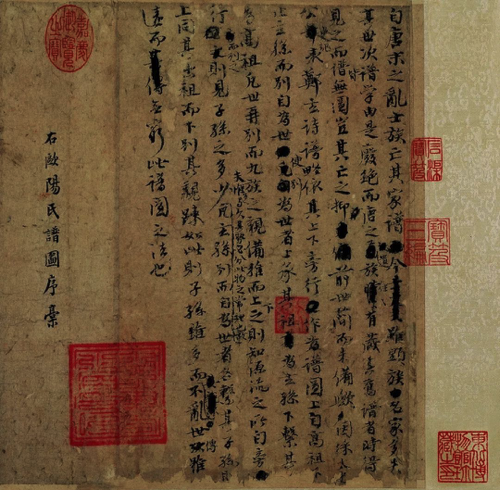 自唐末之亂士族亡其家譜今雖顯族名家多失
其世次譜學由是廢絕而唐之遺族有藏其舊譜者時得
見之而譜皆無圖豈其亡之抑前世簡而未備歟因採太史
公表鄭玄詩譜略依其上下旁行作為譜圖上自高祖下
止玄孫而別自為世使別為世者上承其祖為玄孫下繫其
孫為高祖凡世再別而九族之親備推而上下之則知源流之所自旁
行而列之則見子孫之多少夫惟多與久其勢必分此物之常理也凡玄孫別而自為世者各繫其子孫則
上同其出祖而下別其親疎如此則子孫雖多而不亂世傳雖
遠而無窮此譜圖之法也
右歐陽氏譜圖序稾